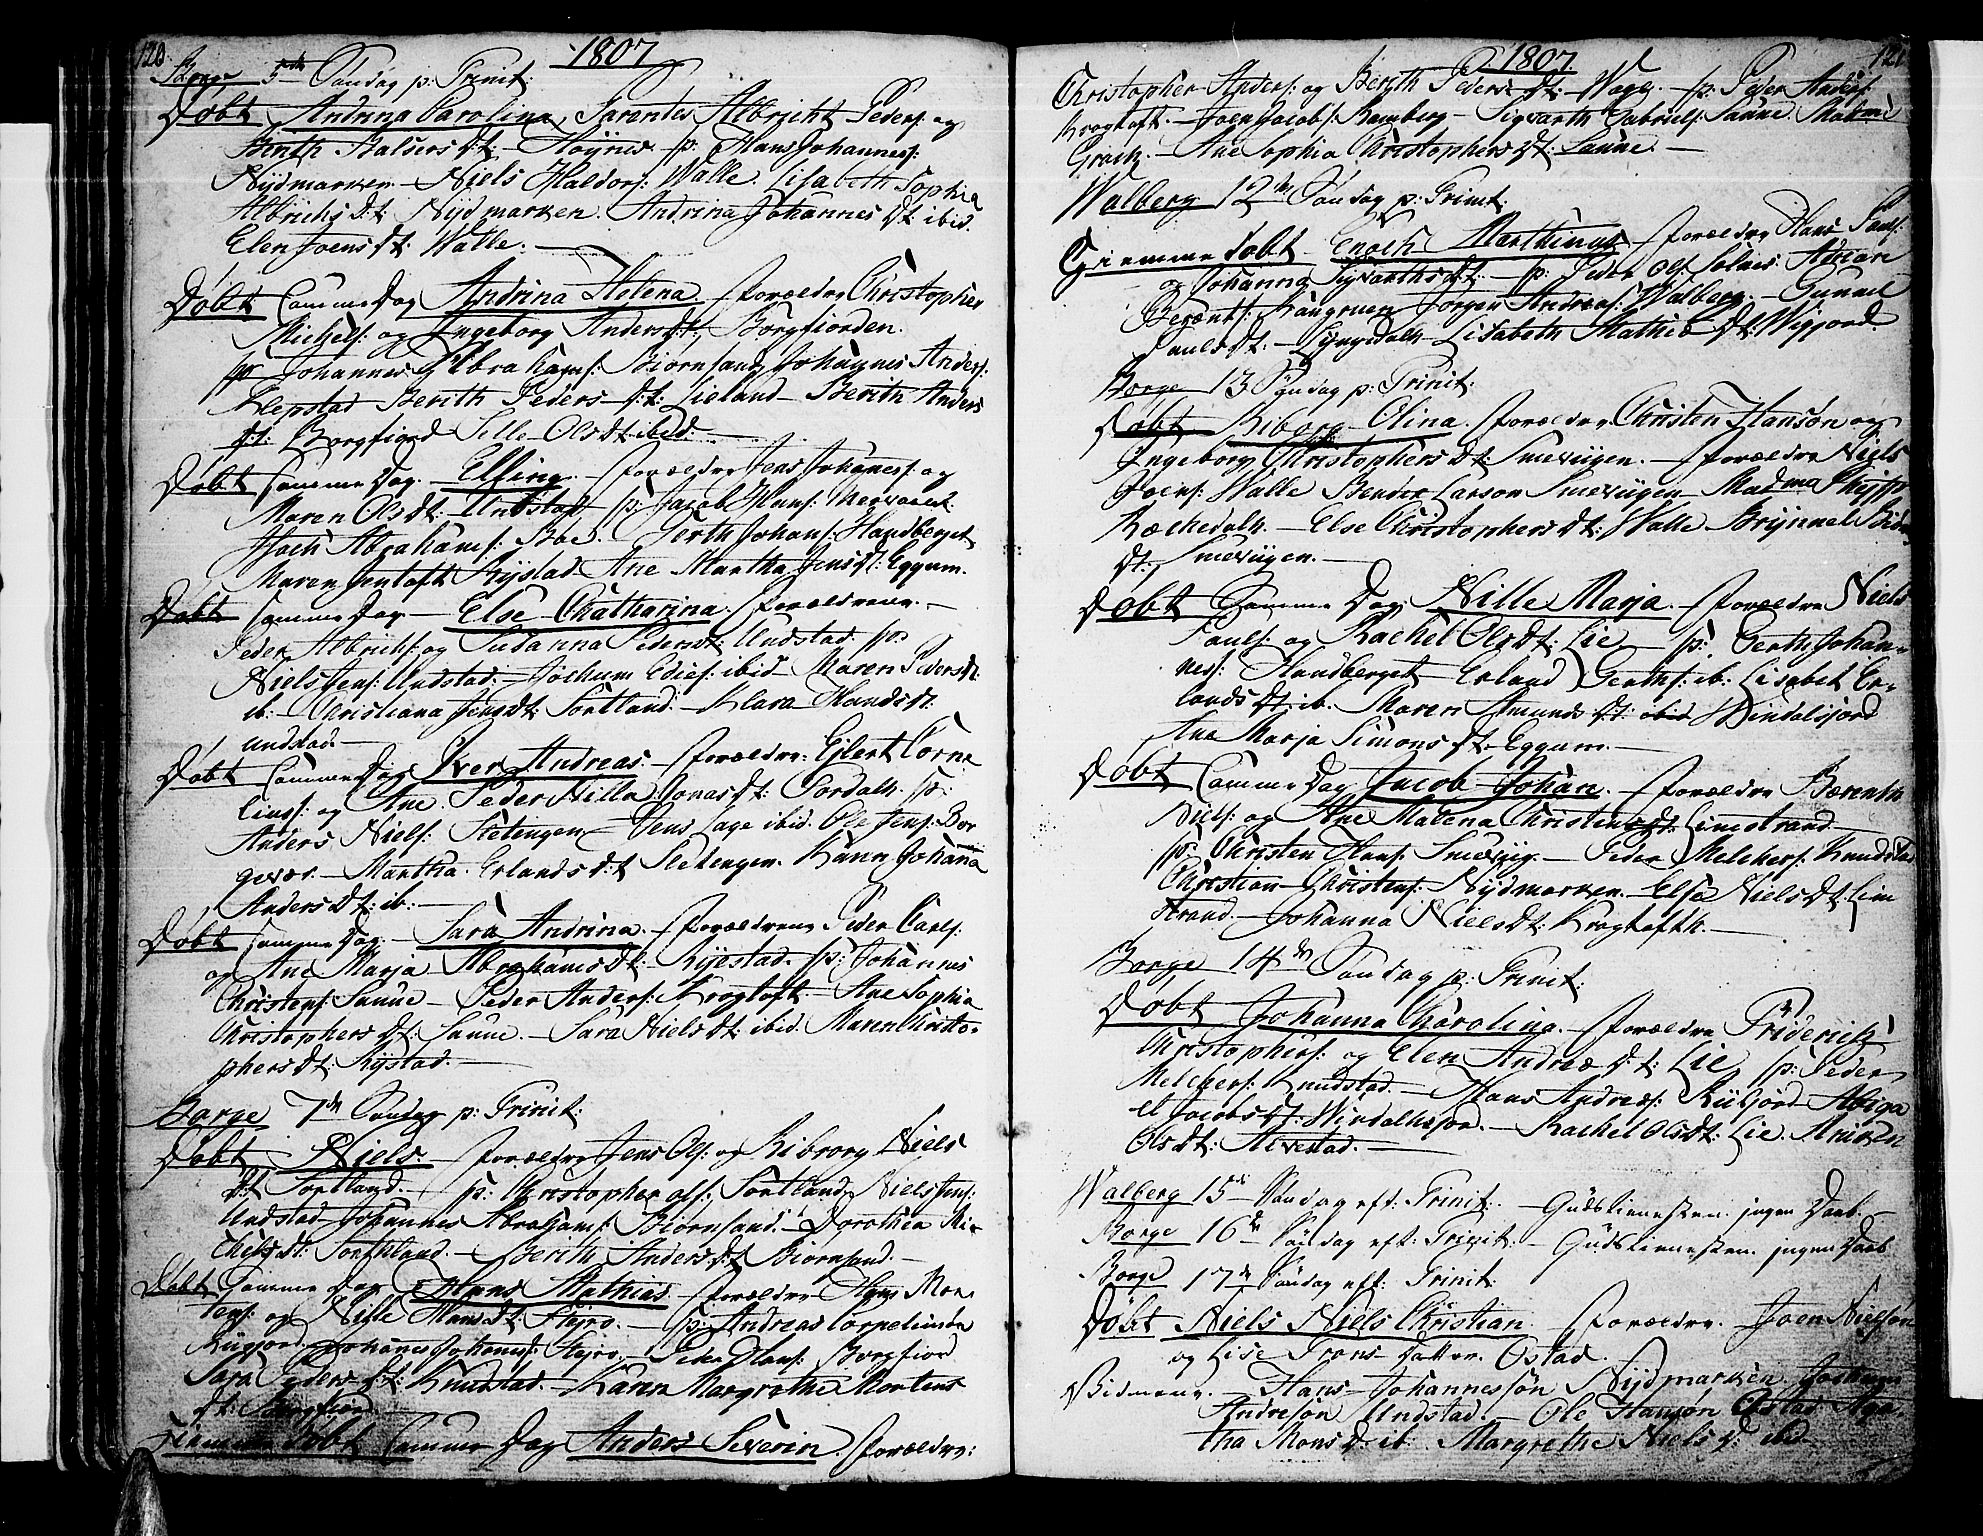 120. 1807
Borge 5te Søndag p: Trinit:
Døbt Andrina Carolina, Parentes Albricht Peders: og
Berith Halsersdt: Høynes p: Hans Johannes:
Nydmarken – Niels Haldors: Walle. Lisabeth Sophia
Albrichsdt: Nydmarken. Andrina Johannesdt: ibid.
Elen Joensdt: Walle. –
Døbt Samme Dag Andrina Helena – forældre Christopher
Michels: og Ingeborg Andersdt: Borgfiorden.
sp: Johannes Abrahams: Biørnsand Johannes Anders:
Klepstad Berith Pedersdt: Lieland – Berith Anders
dt: Borgfiord Sille Olsdt: ibid. –
Døbt samme Dag. Elling – forældre Jens Johanes: og
Maren Olsdt: Undstad sp: Jacob Hans:
Abrahams: Bøe. Gerth Johans: Handberget
Maren Jentoft Rystad Ane Martha Jensdt: Eggum.
Døbt samme Dag – Else Chatharina. forældrene –
Peder Albrichs: og Susanna Pedersdt: Undstad sp:
Niels Jens: Undstad – Jochum Edies: ibid – Maren Pedersdt:
ib: – Christiana Jensdt: Sortland. – Klara Handsdt:
undstad. –
Døbt Samme Dag Iver Andreas – forældre: Ejlert Corne
lius: og Ane Peder Nilla Jonasdt: Sørdalh. sp:
Anders Niels: Stetingen – Jens Lage ibid. Ole Jens: Bor
gevær. – Martha Erlandsdt: Stetengen. Karen Johana
Andersdt: ib: –
Døbt samme Dag – Sara Andrina – forældrene Peder Carls:
og Ane Marja Abrahamsdt: Rystad. sp: Johannes
Christens: Saune – Peder Anders: Krogtoft – Ane Sophia
Christophersdt: Saune. – Sara Nielsdt: ibid. Maren Christo-
phersdt: Rystad. –
Borge 7de Søndag p: Trinit:
Døbt Niels. – forældre Jens Ols: og Riborg Niels
dt Sortland. – sp: Christopher Ols: Sortland Niels Jens:
Undstad Johannes Abrahams: Biørnsand. – Dorothea Mi-
chelsdt: Sortland. – Berith Andersdt Biørnsand –
Døbt Samme Dag Hans Mathias – forældre Hans Mor-
tens: og Nille Hansdt: Høyro. – sp: Andreas Cornelius
Rüfjord. Johanes Johans: Høyro – Peder Hans: Borgfiord
Sara Pedersdt: Knudstad – Karen Margrethe Mortens
dt: Borgfiord
Hiemme Døbt Samme Dag Anders Severin. forældre:
1807 121
Christopher Anders: og Berith Pedersdt: Wogn. – sp: Peder Anders:
Krogtoft. – Joen Jacobs: Ramberg – Sigvarth Gabriels: Saune
Ane Sophia Christophersdt: Saune. –
Walberg 12te Søndag p: Trinit:
Giemme døbt – Enoch Marthinus – forældre Hans Pauls:
og Johanna Sigvarthsdt: – sp: Peder Ols: Solnes Adrian
Berents: Jørgen Andreas: Walberg. – Gunnel
Paulsdt: – Lyngedalh – Lisabeth Mathiedt: Wigjord
Borge 13 Søndag p: Trinit:
Døbt Riborg Olina. forældre Christen Hansøn og
Ingeborg Christophersdt: Smevügen. – forældre Niels
Joens: Walle Bender Larson Smevügen – Madme
Rækedalh. – Else Christophersdt: Walle Brynnel
dt: Smevügen. –
Døbt Samme Dag Nille Marja. – forældre Niels
Pauls: og Rachel Olsdt: Lie – sp: Gerth Johan-
nes: Handberget – Erland Gerths: ib: Lisabet Er-
landsdt: ib. Maren Amundsdt: Windalsjord
Ane Marja Simonsdt: Eggum. –
Døbt Samme Dag Jacob Johan. – forældre Berentn
Niels: og Ane Malena Christensdt: Limstrand –
sp: Christen Hans: Smevyig. – Peder Melchers: Knudstad
Christian Christens: Nydmarken. – Else Nielsdt: Lim
strand. – Johanna Nielsdt: Krogtofth. –
Borge 14de Søndag p: Trinit:
Døbt Johanna Charolina. – forældre Friderich
Christophers: og Elen Andreædt: Lie sp: Peder
Melchers: Knudstad. – Hans Andreas: Rüfjord Abiga
el Jacobsdt: Windalhsjord. – Rachel Olsdt: Lie.
Olsdt: Alvestad. –
Walberg 15de Søndag eft: Trinit. – Gudstienesten ingen Daab. –
Borge 16de Søndag eft: Trinit – Gudstienesten ingen Daab
Borge 17de Søndag eft: Trinit:
Døbt Niels Niels Christian. – forældre. Joen Nielsøn
og Lise Trons – datter. Ostad.
Vidnene. – Hans Johannessøn Nydmarken
Andresøn Undstad. – Ole Hansøn Ostad Aga
tha Monsdt: ib. Margrethe Nielsdt: ibid